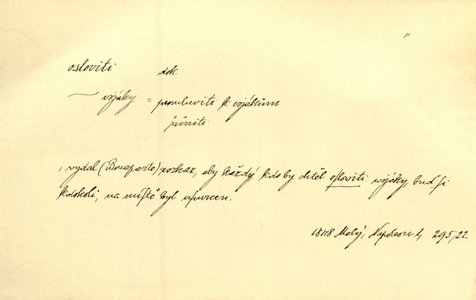 "
osloviti dok.
— vojáky = promluviti k vojákům
řečniti
, vydal (Bonaparte) rozkaz, aby každý kdo by chtěl osloviti vojáky, buď si
kdokoli, na místě byl usmrcen.
1848 Malý, Napoleon I, 295, 22.